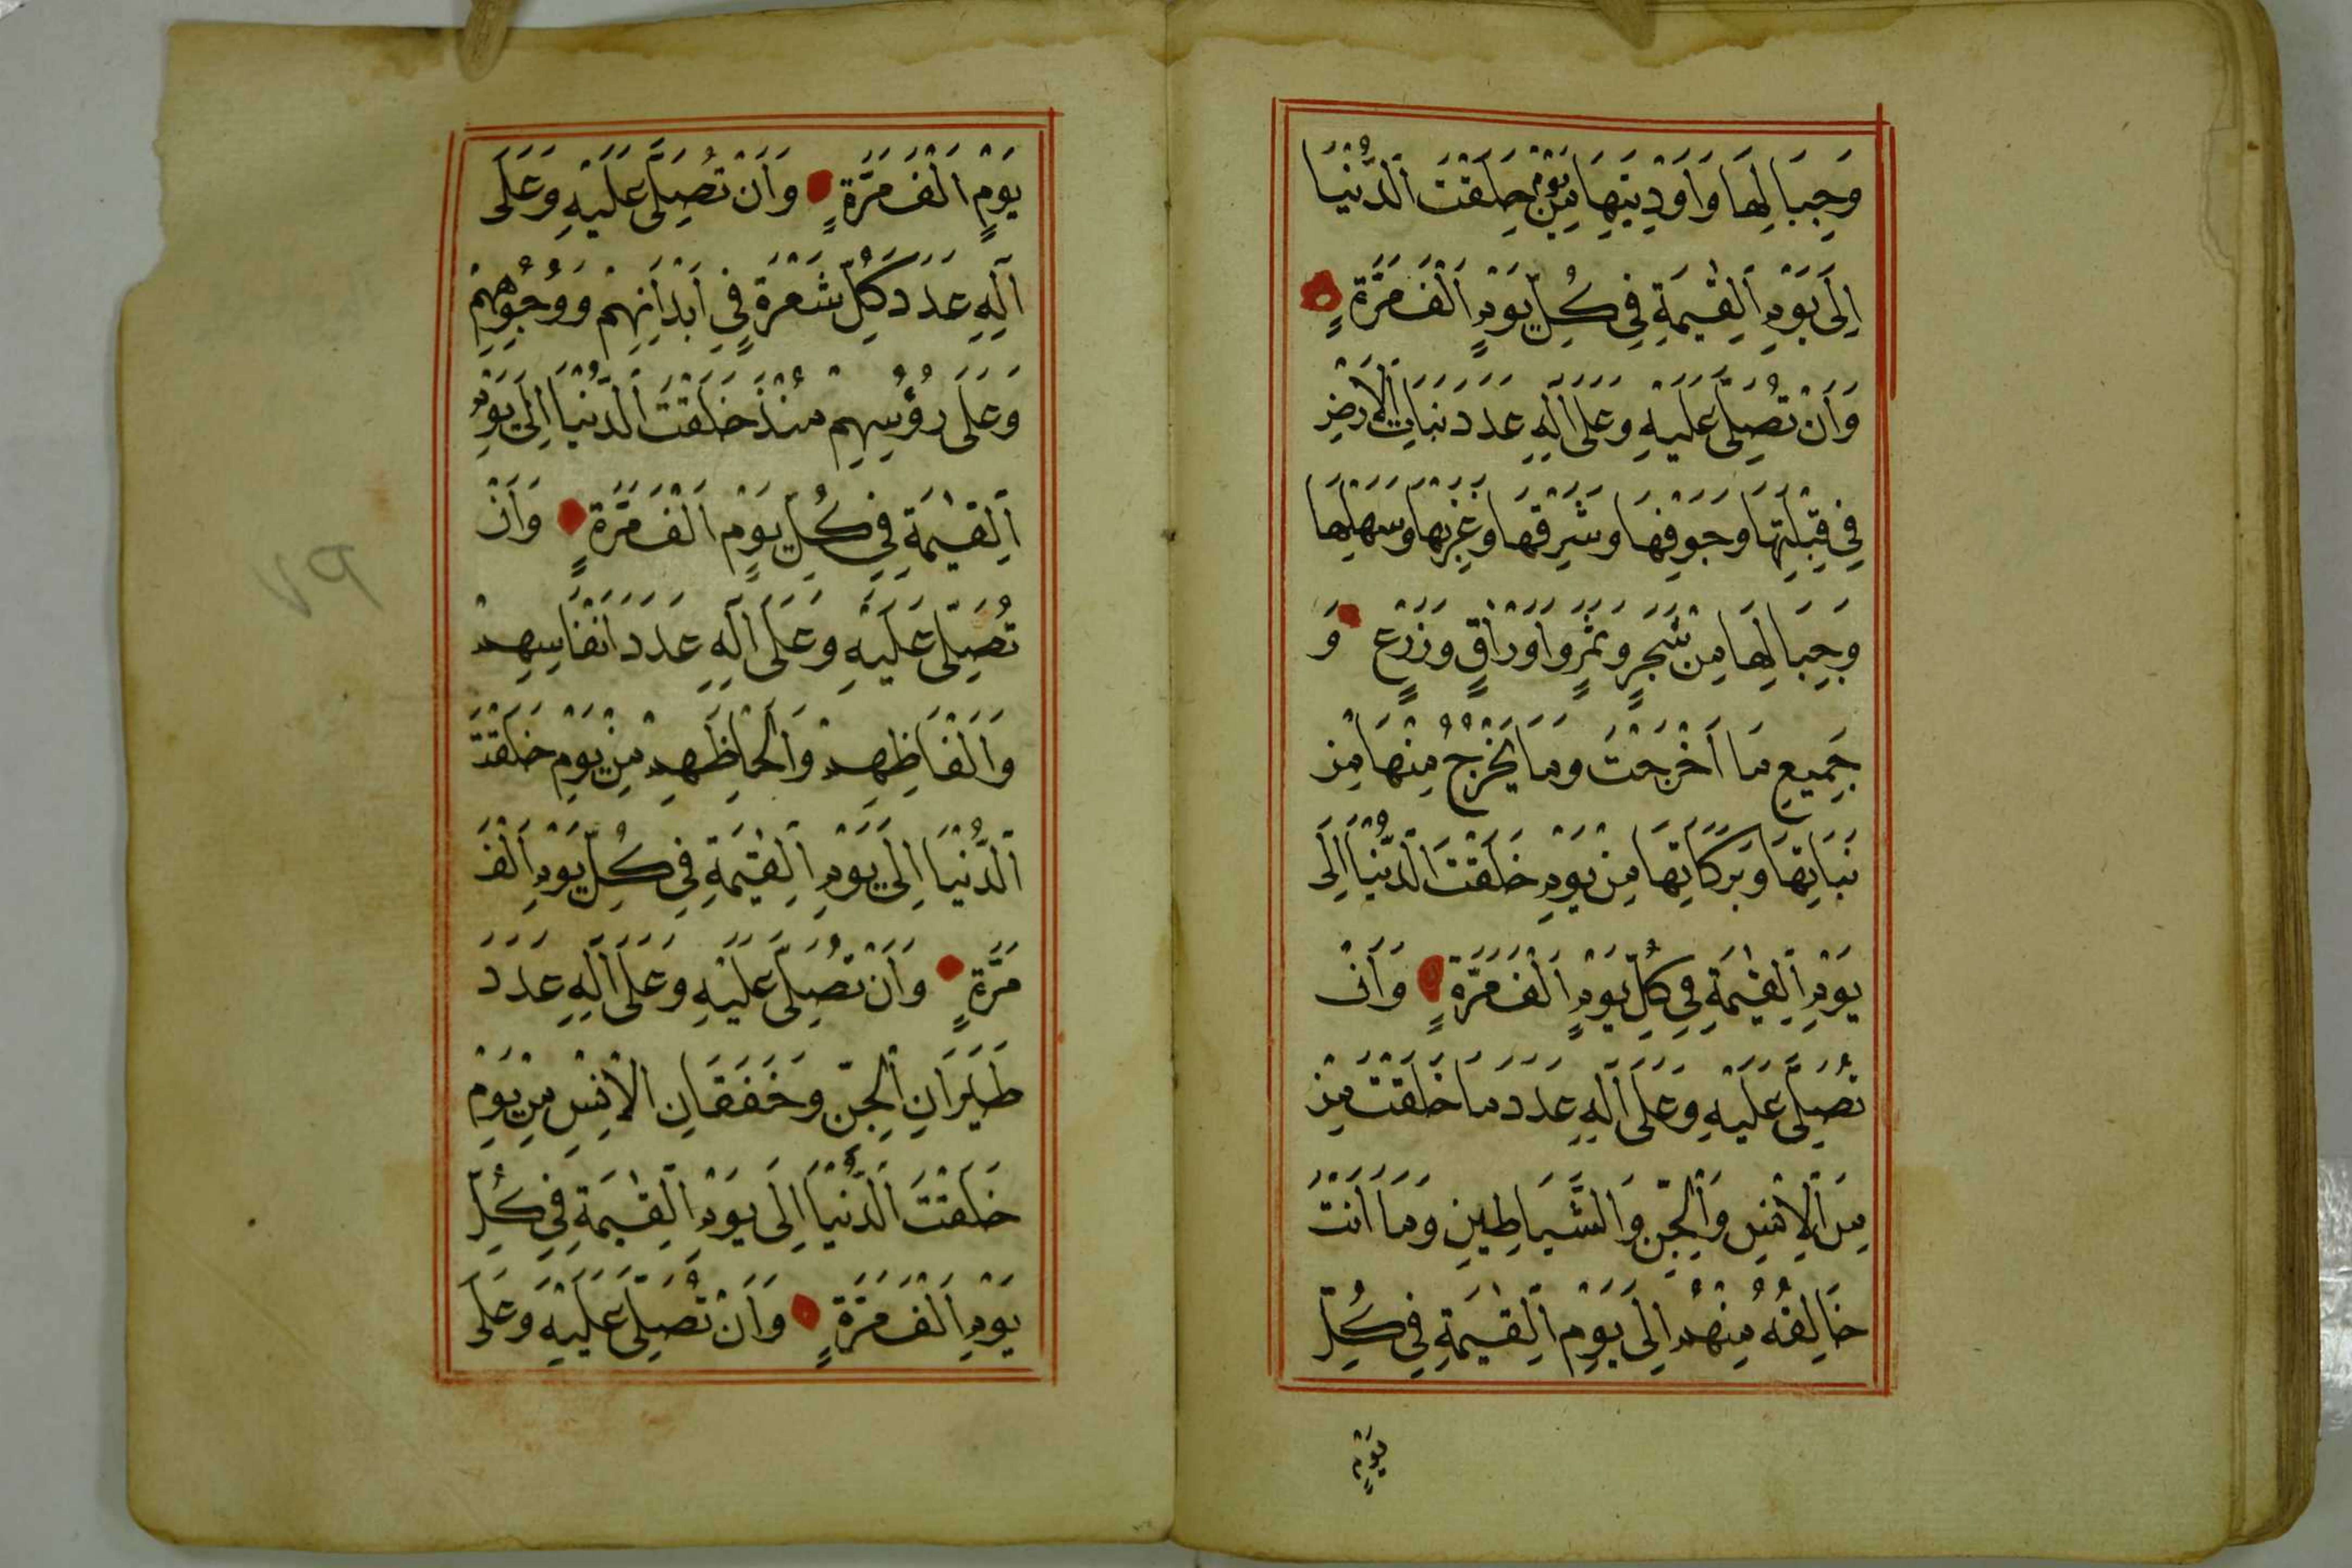 وَجِبَالِهَا وَاَوْدِيَتِهَا مِنْ يَوْمِ خَلَقْتَ الدُّنْيَا
اِلَى يَوْمِ الْقِيٰمَةِ فِي كُلِّ يَوْمٍ اَلْفَ مَرَّةٍ
وَاَنْ تُصَلِّيَ عَلَيْهِ وَعَلَى اٰلِهِ عَدَدَ نَبَاتِ الْاَرْضِ
فِي قِبْلَتِهَا وَجَوْفِهَا وَشَرْقِهَا وَغَرْبِهَا وَسَهْلِهَا
وَجِبَالِهَا مِنْ شَجَرٍ وَثَمَرٍ وَاَوْرَاقٍ وَزَرْعٍ وَ
جَمِيعِ مَا اَخْرَجَتْ وَمَا يَخْرُجُ مِنْهَا مِنْ
نَبَاتِهَا وَبَرَكَاتِهَا مِنْ يَوْمِ خَلَقْتَ الدُّنْيَا اِلَى
يَوْمِ الْقِيٰمَةِ فِي كُلِّ يَوْمٍ اَلْفَ مَرَّةٍ وَاَنْ
تُصَلِّيَ عَلَيْهِ وَعَلَى اٰلِهِ عَدَدَ مَا خَلَقْتَ مِنْ
مِنَ الْاِنْسِ وَالْجِنِّ وَالشَّيَاطِينِ وَمَا اَنْتَ
خَالِقُهُ مِنْهُمْ اِلَى يَوْمِ الْقِيٰمَةِ فِي كُلِّ
يَوْمٍ
يَوْمٍ اَلْفَ مَرَّةٍ وَاَنْ تُصَلِّيَ عَلَيْهِ وَعَلَى
اٰلِهِ عَدَدَ كُلِّ شَعْرَةٍ فِي اَبْدَانِهِمْ وَوُجُوهِهِمْ
وَعَلَى رُؤُسِهِمْ مُنْذُ خَلَقْتَ الدُّنْيَا اِلَى يَوْمِ
الْقِيٰمَةِ فِي كُلِّ يَوْمٍ اَلْفَ مَرَّةٍ وَاَنْ
تُصَلِّيَ عَلَيْهِ وَعَلَى اٰلِهِ عَدَدَ اَنْفَاسِهِمْ
وَاَلْفَاظِهِمْ وَاَلْحَاظِهِمْ مِنْ يَوْمِ خَلَقْتَ
الدُّنْيَا اِلَى يَوْمِ الْقِيٰمَةِ فِي كُلِّ يَوْمٍ اَلْفَ
مَرَّةٍ وَاَنْ تُصَلِّيَ عَلَيْهِ وَعَلَى اٰلِهِ عَدَدَ
طَيَرَانِ الْجِنِّ وَخَفَقَانِ الْاِنْسِ مِنْ يَوْمِ
خَلَقْتَ الدُّنْيَا اِلَى يَوْمِ الْقِيٰمَةِ فِي كُلِّ
يَوْمٍ اَلْفَ مَرَّةٍ وَاَنْ تُصَلِّيَ عَلَيْهِ وَعَلَى